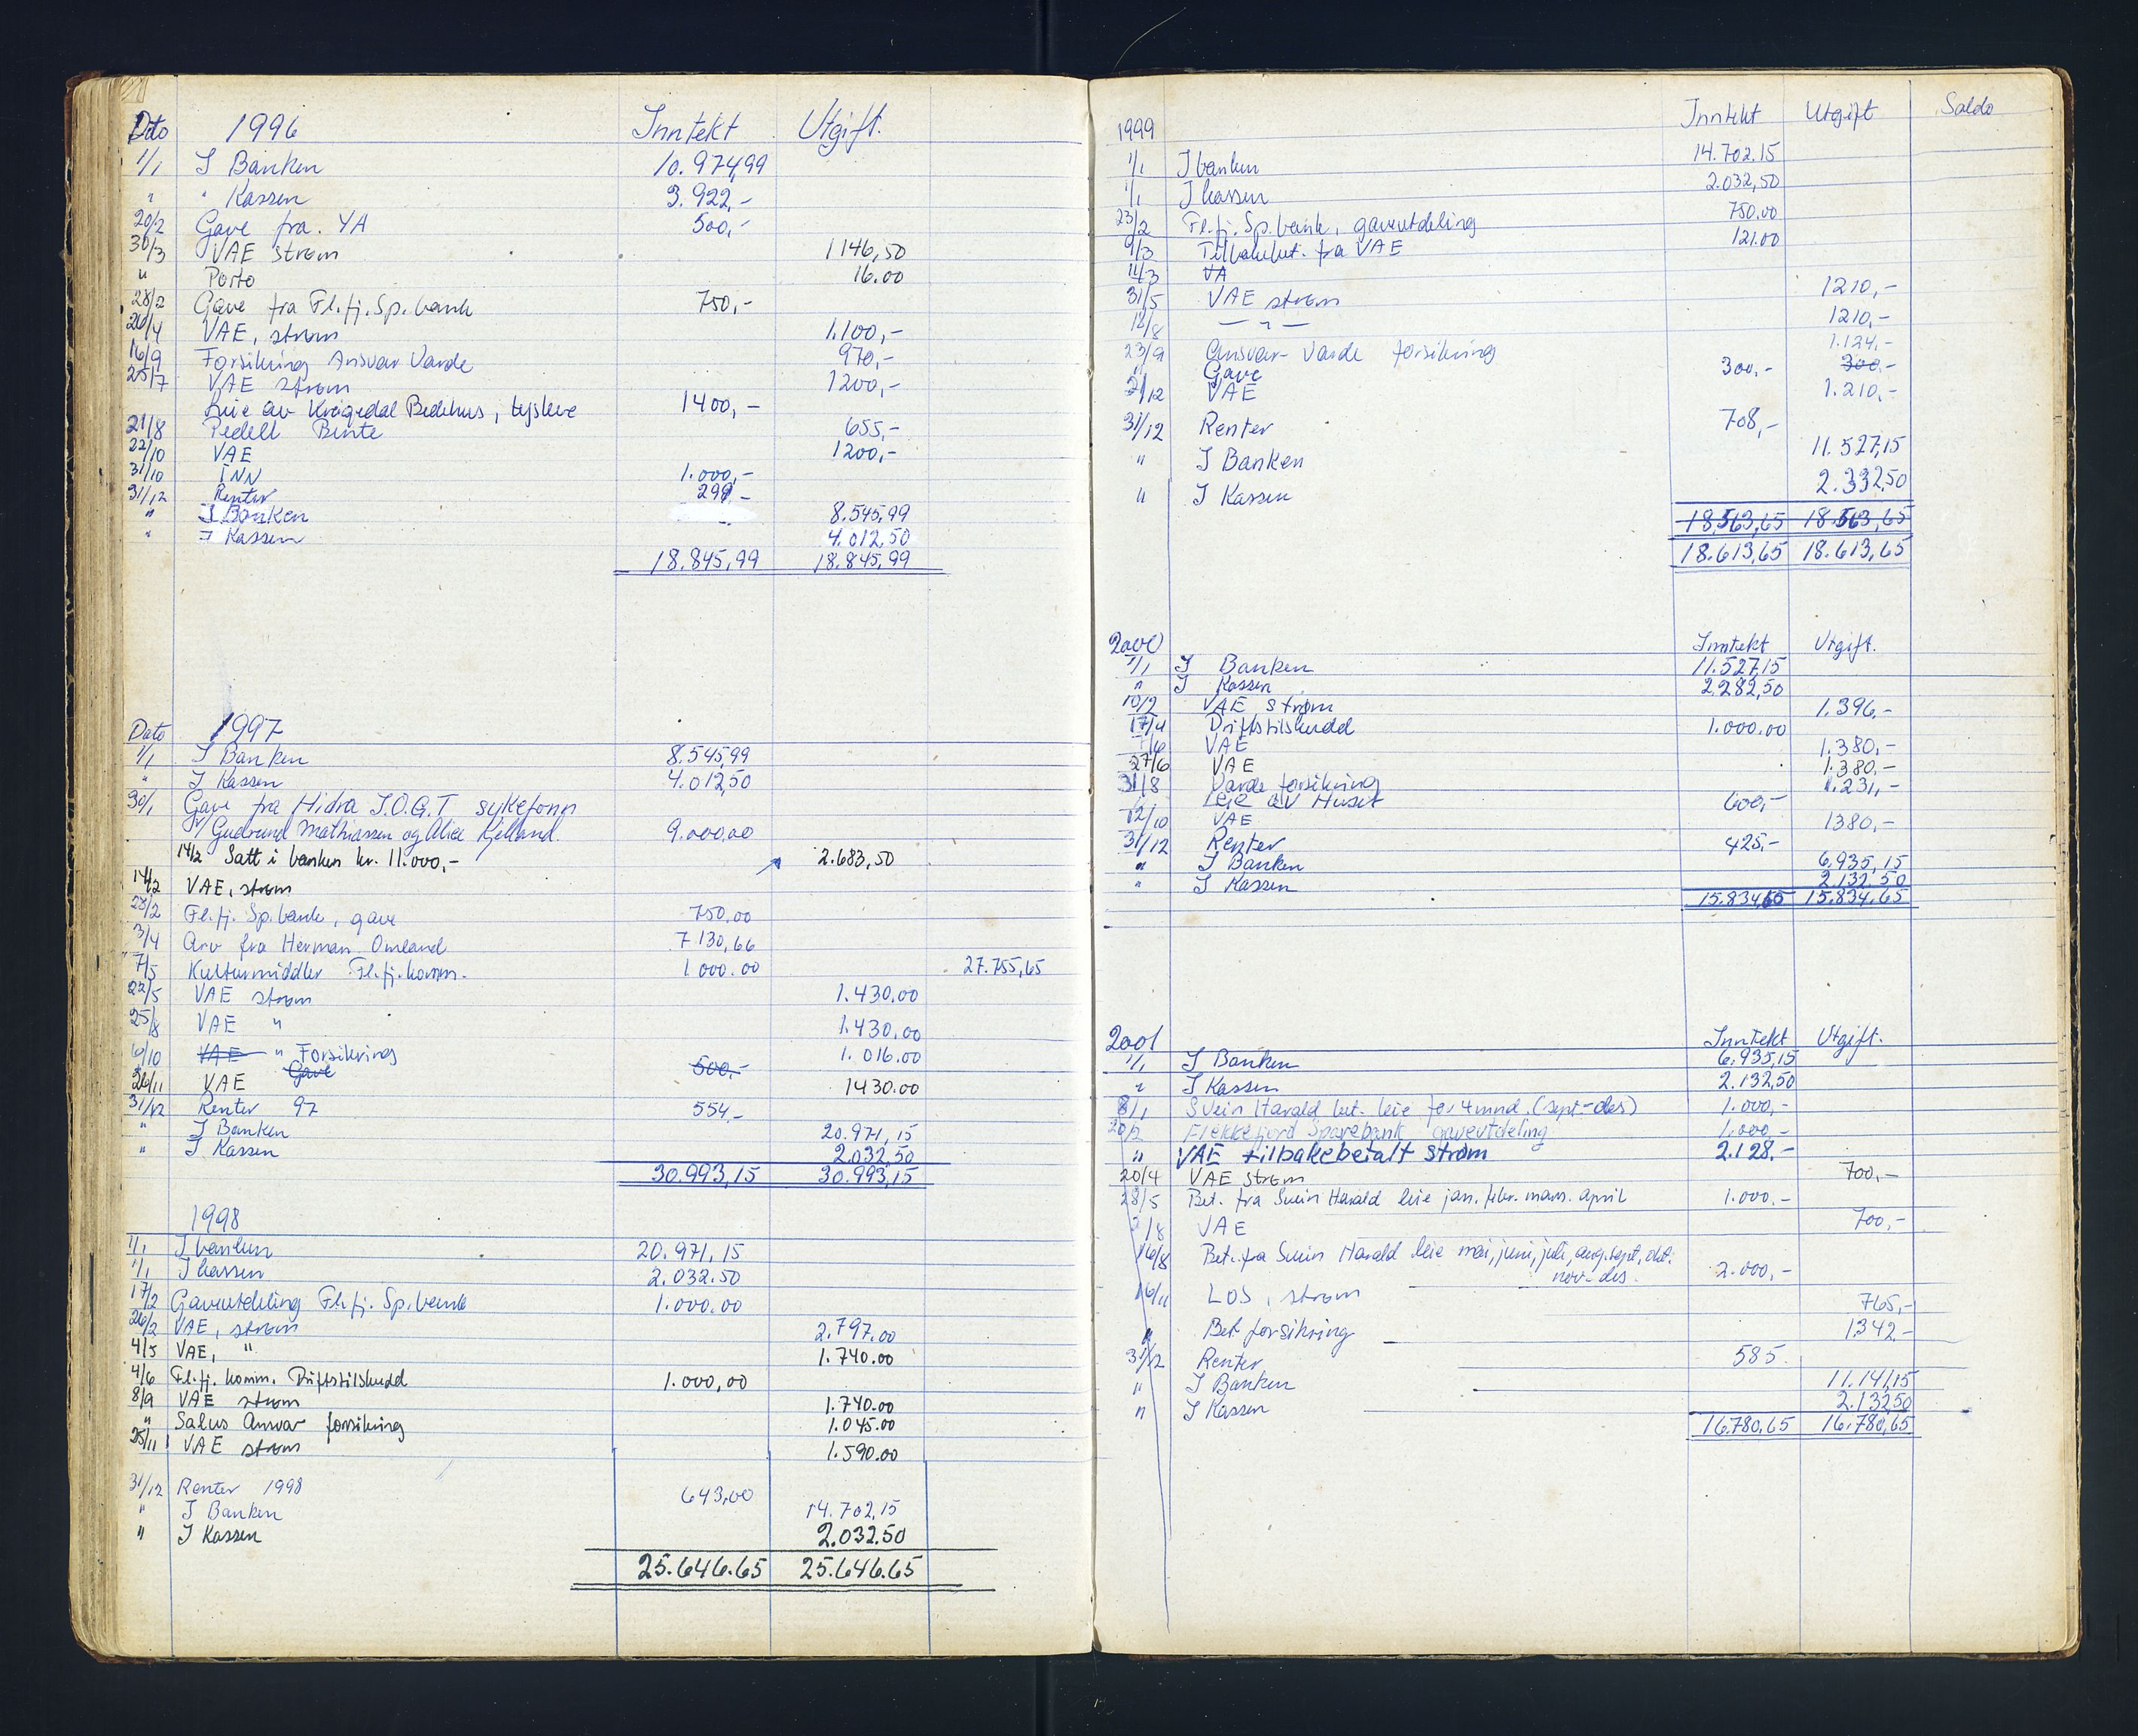 Dato 1996 Inntekt Utgift.
1/1 I Banken 10.974,99
" " Kassen 3.922,-
20/2 Gave fra. YA 500,-
30/3 VAE strøm 1146,50
" Porto 16.00
28/2 Gave fra Fl.fj. Sp.bank 750,-
26/4 VAE, strøm 1.100,-
16/9 Forsikring Ansvar Varde 970,-
25/7 VAE strøm 1200,-
Leie av Krågedal Bedehus, tyskere 1400,-
21/8 Pedell Bente 655,-
22/10 VAE 1200,-
31/10 INN 1.000,-
31/12 Renter 299,-
" I Banken 8.545,99
" I Kassen 4.012,50
18.845,99 18.845,99
Dato 1997
1/1 I Banken 8.545,99
" I Kassen 4.012,50
30/1 Gave fra Hidra I.O.G.T sykefonn
v/ Gudrund Mathiassen og Alice Kjelland. 9.000,00
14/2 Satt i banken kr. 11.000,- 2.683,50
14/2 VAE, strøm
28/2 Fl.fj. Sp.bank, gave 750,00
3/4 Arv fra Herman Omland 7130,66
7/5 Kulturmiddler Fl.fj.komm. 1000.00 27.755,65
22/5 VAE strøm 1.430.00
25/8 VAE " 1.430.00
6/10 VAE " Forsikring 1.016.00
Gave 500,-
26/11 VAE 1430.00
31/12 Renter 97 554,-
" I Banken 20.971,15
" I Kassen 2.032,50
30.993,15 30.993,15
1998
1/1 I banken 20.971,15
1/1 I kassen 2.032.50
17/2 Gaveutdeling Fl.fj. Sp.bank 1.000.00
26/2 VAE, strøm 2.797.00
4/5 VAE, " 1.740.00
4/6 Fl.fj. komm. Driftstilskudd 1.000,00
8/9 VAE strøm 1.740.00
" Salus Ansvar forsikring 1.045.00
25/11 VAE strøm 1.590.00
31/12 Renter 1998 643,00
" I Banken 14.702,15
" I Kassen 2.032.50
25.646.65 25.646.65
1999 Inntekt Utgift Saldo
1/1 I banken 14.702.15
1/1 I kassen 2.032,50
23/2 Fl.fj. Sp.bank, gaveutdeling 750.00
9/3 Tilbakebet. fra VAE 121.00
11/3 VA
31/5 VAE strøm 1210,-
12/8 — " — 1210,-
23/9 Ansvar- Varde forsikring 1.124.-
" Gave 300,- 300,-
2/12 VAE 1.210,-
31/12 Renter 708,-
" I Banken 11.527,15
" I Kassen 2.332,50
18.563,65 18.563,65
18.613,65 18.613,65
2000 Inntekt Utgift.
1/1 I Banken 11.527,15
" I Kassen 2.282,50
10/2 VAE strøm 1.396,-
17/4 Driftstilskudd 1.000.00
VAE 1.380,-
27/6 VAE 1.380.-
31/8 Varde forsikring 1.231,-
Leie av Huset 600,-
12/10 VAE 1380,-
31/12 Renter 425,-
" I Banken 6.935,15
" I Kassen 2.132.50
15.834,65 15.834.65
2001 Inntekt Utgift.
1/1 I Banken 6.935,15
" I Kassen 2.132,50
8/1 Svein Harald bet. leie for 4 mnd. (sept-des) 1.000,-
20/2 Flekkefjord Sparebank gaveutdeling 1.000,-
" VAE tilbakebetalt strøm 2.128.-
20/4 VAE strøm 700,-
28/5 Bet. fra Svein Harald leie jan. febr. mars. april 1.000.-
/8 VAE 700,-
16/8 Bet. fra Svein Harald leie mai, juni, juli, aug. sept, okt.
nov- des. 2.000,-
16/11 LOS, strøm 765,-
" Bet forsikring 1342-
31/12 Renter 585.
" I Banken 11.141,15
" I Kassen 2.132,50
16.780,65 16.780,65